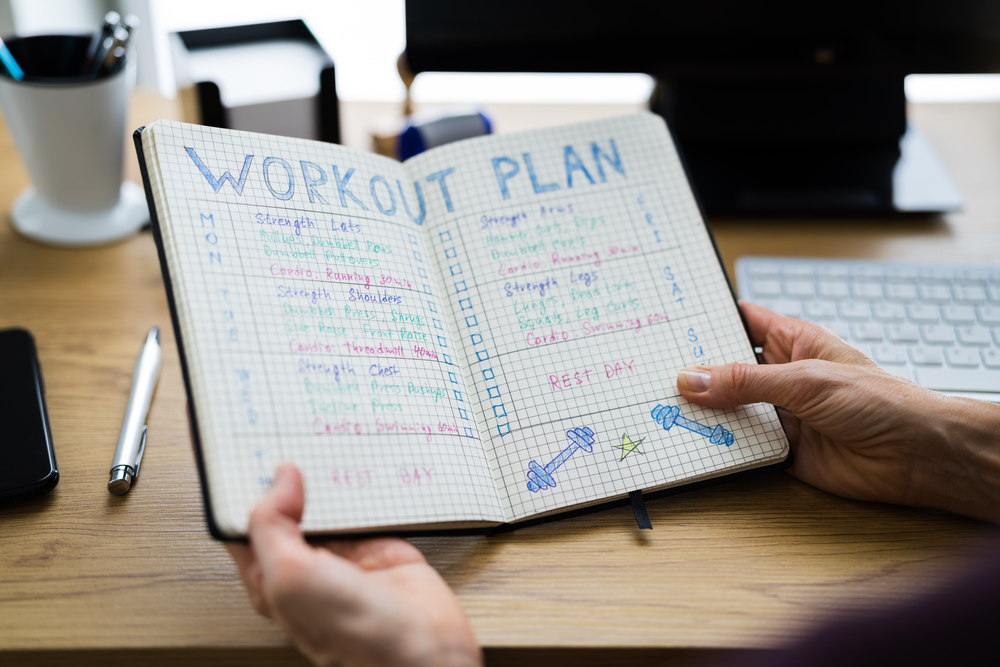 WORKOUT PLAN
MON
Strength Lats
Dumbbell Rows
Dumbbell Pullovers
Cardio: Running 30min
TUE
Strength Shoulders
Dumbbell Press, Shrug
Raise, Front Raise
Cardio: threadmill 40min
WED
Strength Chest
Dumbbell Press Pushups
Press
Cardio Swimming 60min
REST DAY
FRI
Strength Arms
Hammer Curls
Dumbbell Curls
Cardio: Running 30min
SAT
Strength Legs
Lunges, Dead Lift
Squats, Leg Curls
Cardio Swimming 60m
SU
REST DAY